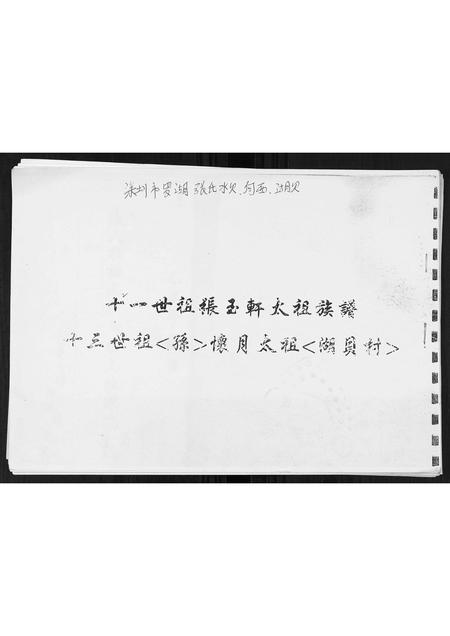 深圳市罗湖张氏水贝、向西、湖贝
十一世祖張玉軒太祖族譜
十三世祖<孫>懷月太祖<湖貝村>